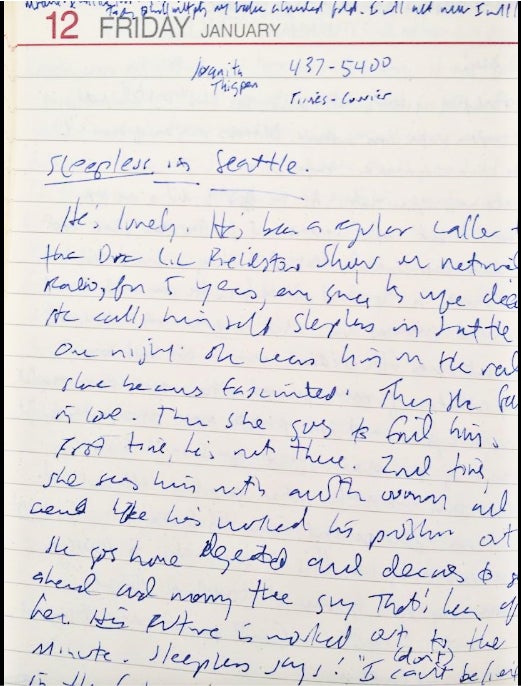 12 FRIDAY JANUARY
Juanita 437-5400
Thigpen Times-Courier
Sleepless in Seattle.
He's lonely. He's been a regular caller
the Doc Show on network
Radio, for 5 years, ever since his wife
He calls himself Sleepless in Seattle
One night. She hears him on the
she becomes fascinated. Then she
in love. Then she goes to find him.
First time, he's not there. 2nd time,
she sees him with another woman and
he has worked his problem out
She goes home dejected and decides to
ahead and marry the guy that's been
her. His future is worked out to the
minute. Sleepless says: "I can't (don't)
in the